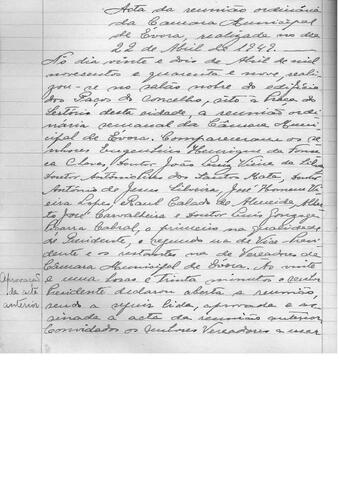 Acta da reunião ordinária
da Camara Municipal
de Évora, realizada no dia
22 de Abril de 1949.
No dia vinte e dois de Abril de mil
novecentos e quarenta e nove, reali-
zou-se no salão nobre do edificio
dos Paços do Concelho, sito à Praça do
Sertório desta cidade, a reunião ordi-
nária semanal da Câmara Muni-
cipal de Évora. Compareceram os se-
nhores Engenheiro Henrique da Fonse-
ca Chaves, Doutor João Luiz Vieira da Silva
Doutor António dos Santos Mata, Doutor
António de Jesus Silveira, José Homem Vi-
eira Lopes, Raul Calado de Almeida, Alber-
to José Carvalheira e Doutor Luis Gonzaga
Cabral, o primeiro na qualidade
de Presidente, o segundo na de Vice-Presi-
dente e os restantes na de Vereadores da
Câmara Municipal de Évora. Às vinte
e uma horas e trinta minutos o senhor
Presidente declarou aberta a reunião
sendo a seguir lida, aprovada e as-
sinada a acta da reunião anterior.
Convidados os senhores Vereadores a usar
Aprovação
da acta
anterior